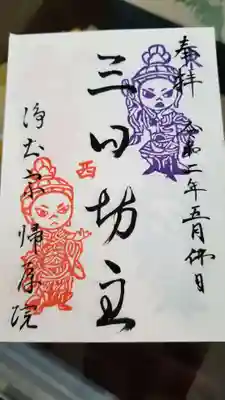 奉拝
令和二年五月佛日
三日坊主
西
浄土宗 帰原院